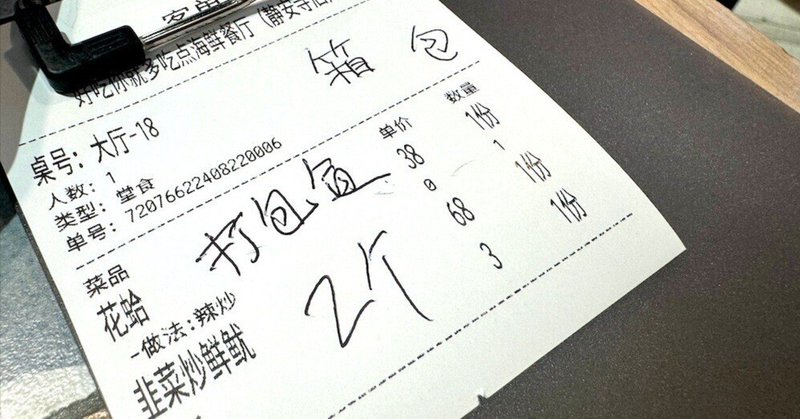 客单
好吃你就多吃点海鲜餐厅（静安寺店
箱 包
桌号：大厅-18
人数：1
类型：堂食
单号：72076622408220006
打包盒
2个
菜品 单价 数量
花蛤 38 1份
-做法：辣炒 0 1
韭菜炒鲜鱿 68 1份
3 1份